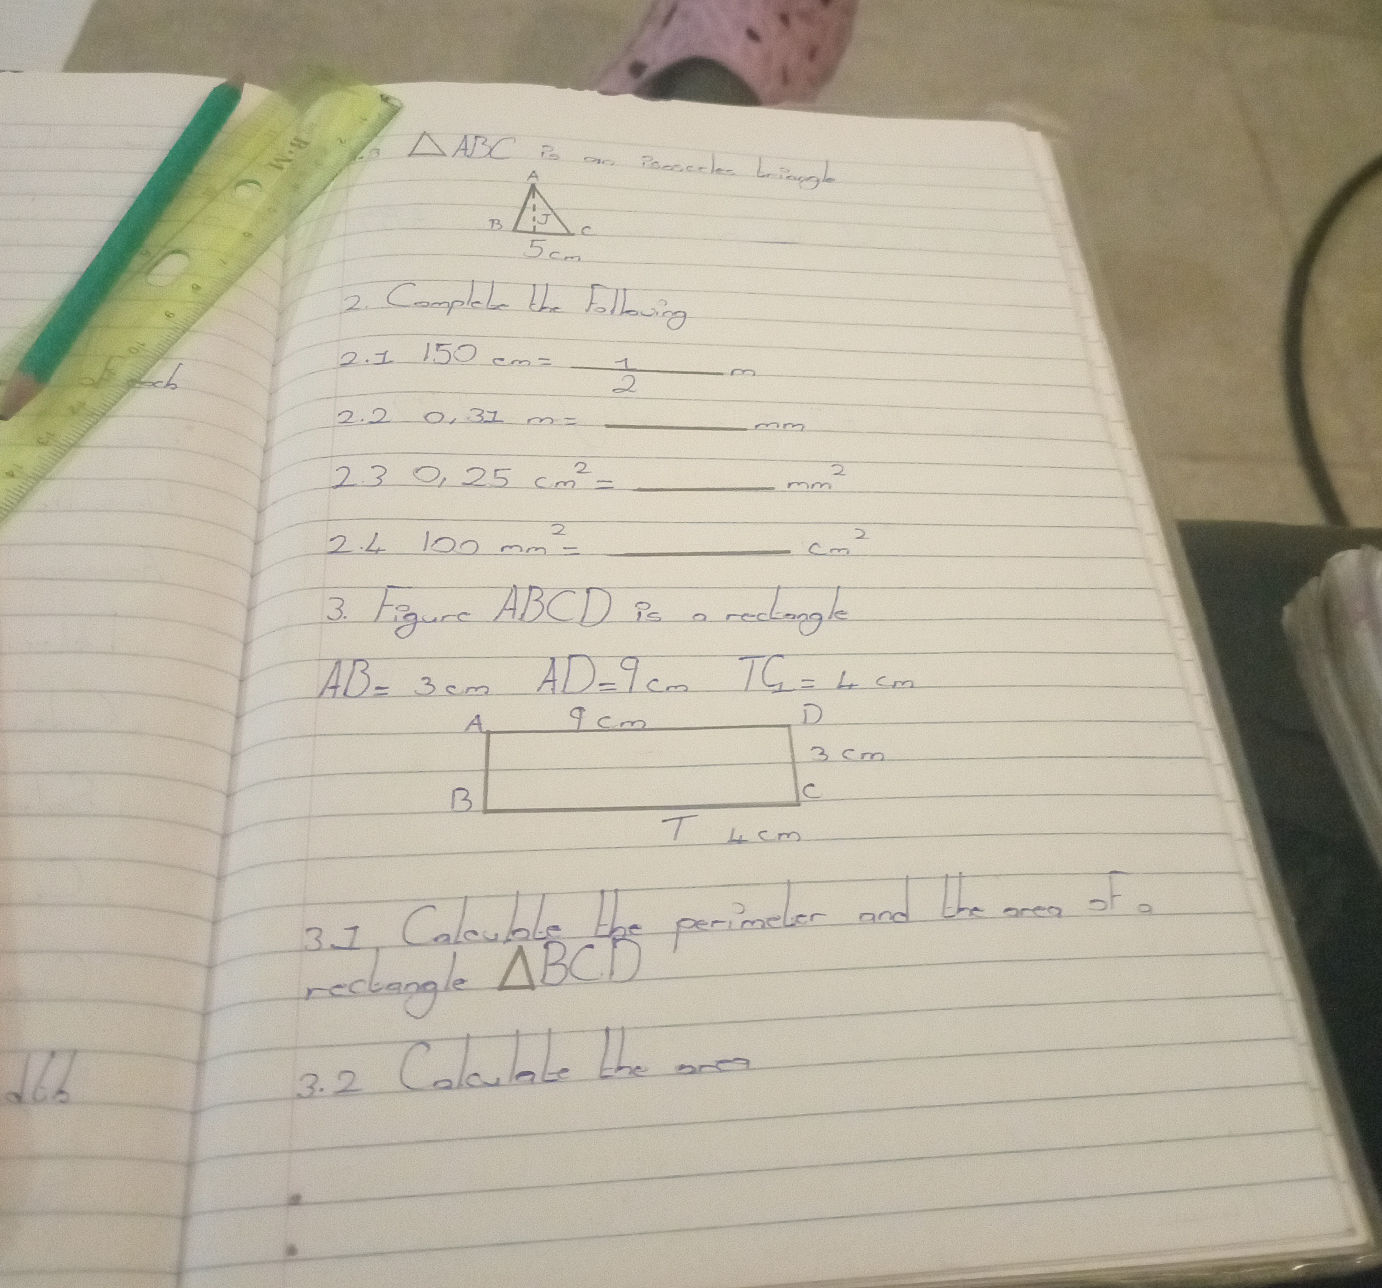 △ABC is an isosceles triangle
A
B J C
5cm
2. Complete the following
2.1 150 cm = 1/2 m
2.2 0,31 m = ______ mm
2.3 0,25 cm² = ______ mm²
2.4 100 mm² = ______ cm²
3. Figure ABCD is a rectangle
AB= 3cm AD=9cm TC = 4 cm
A 9cm D
3 cm
B C
T 4cm
3.1 Calculate the perimeter and the area of a
rectangle ABCD
3.2 Calculate the area